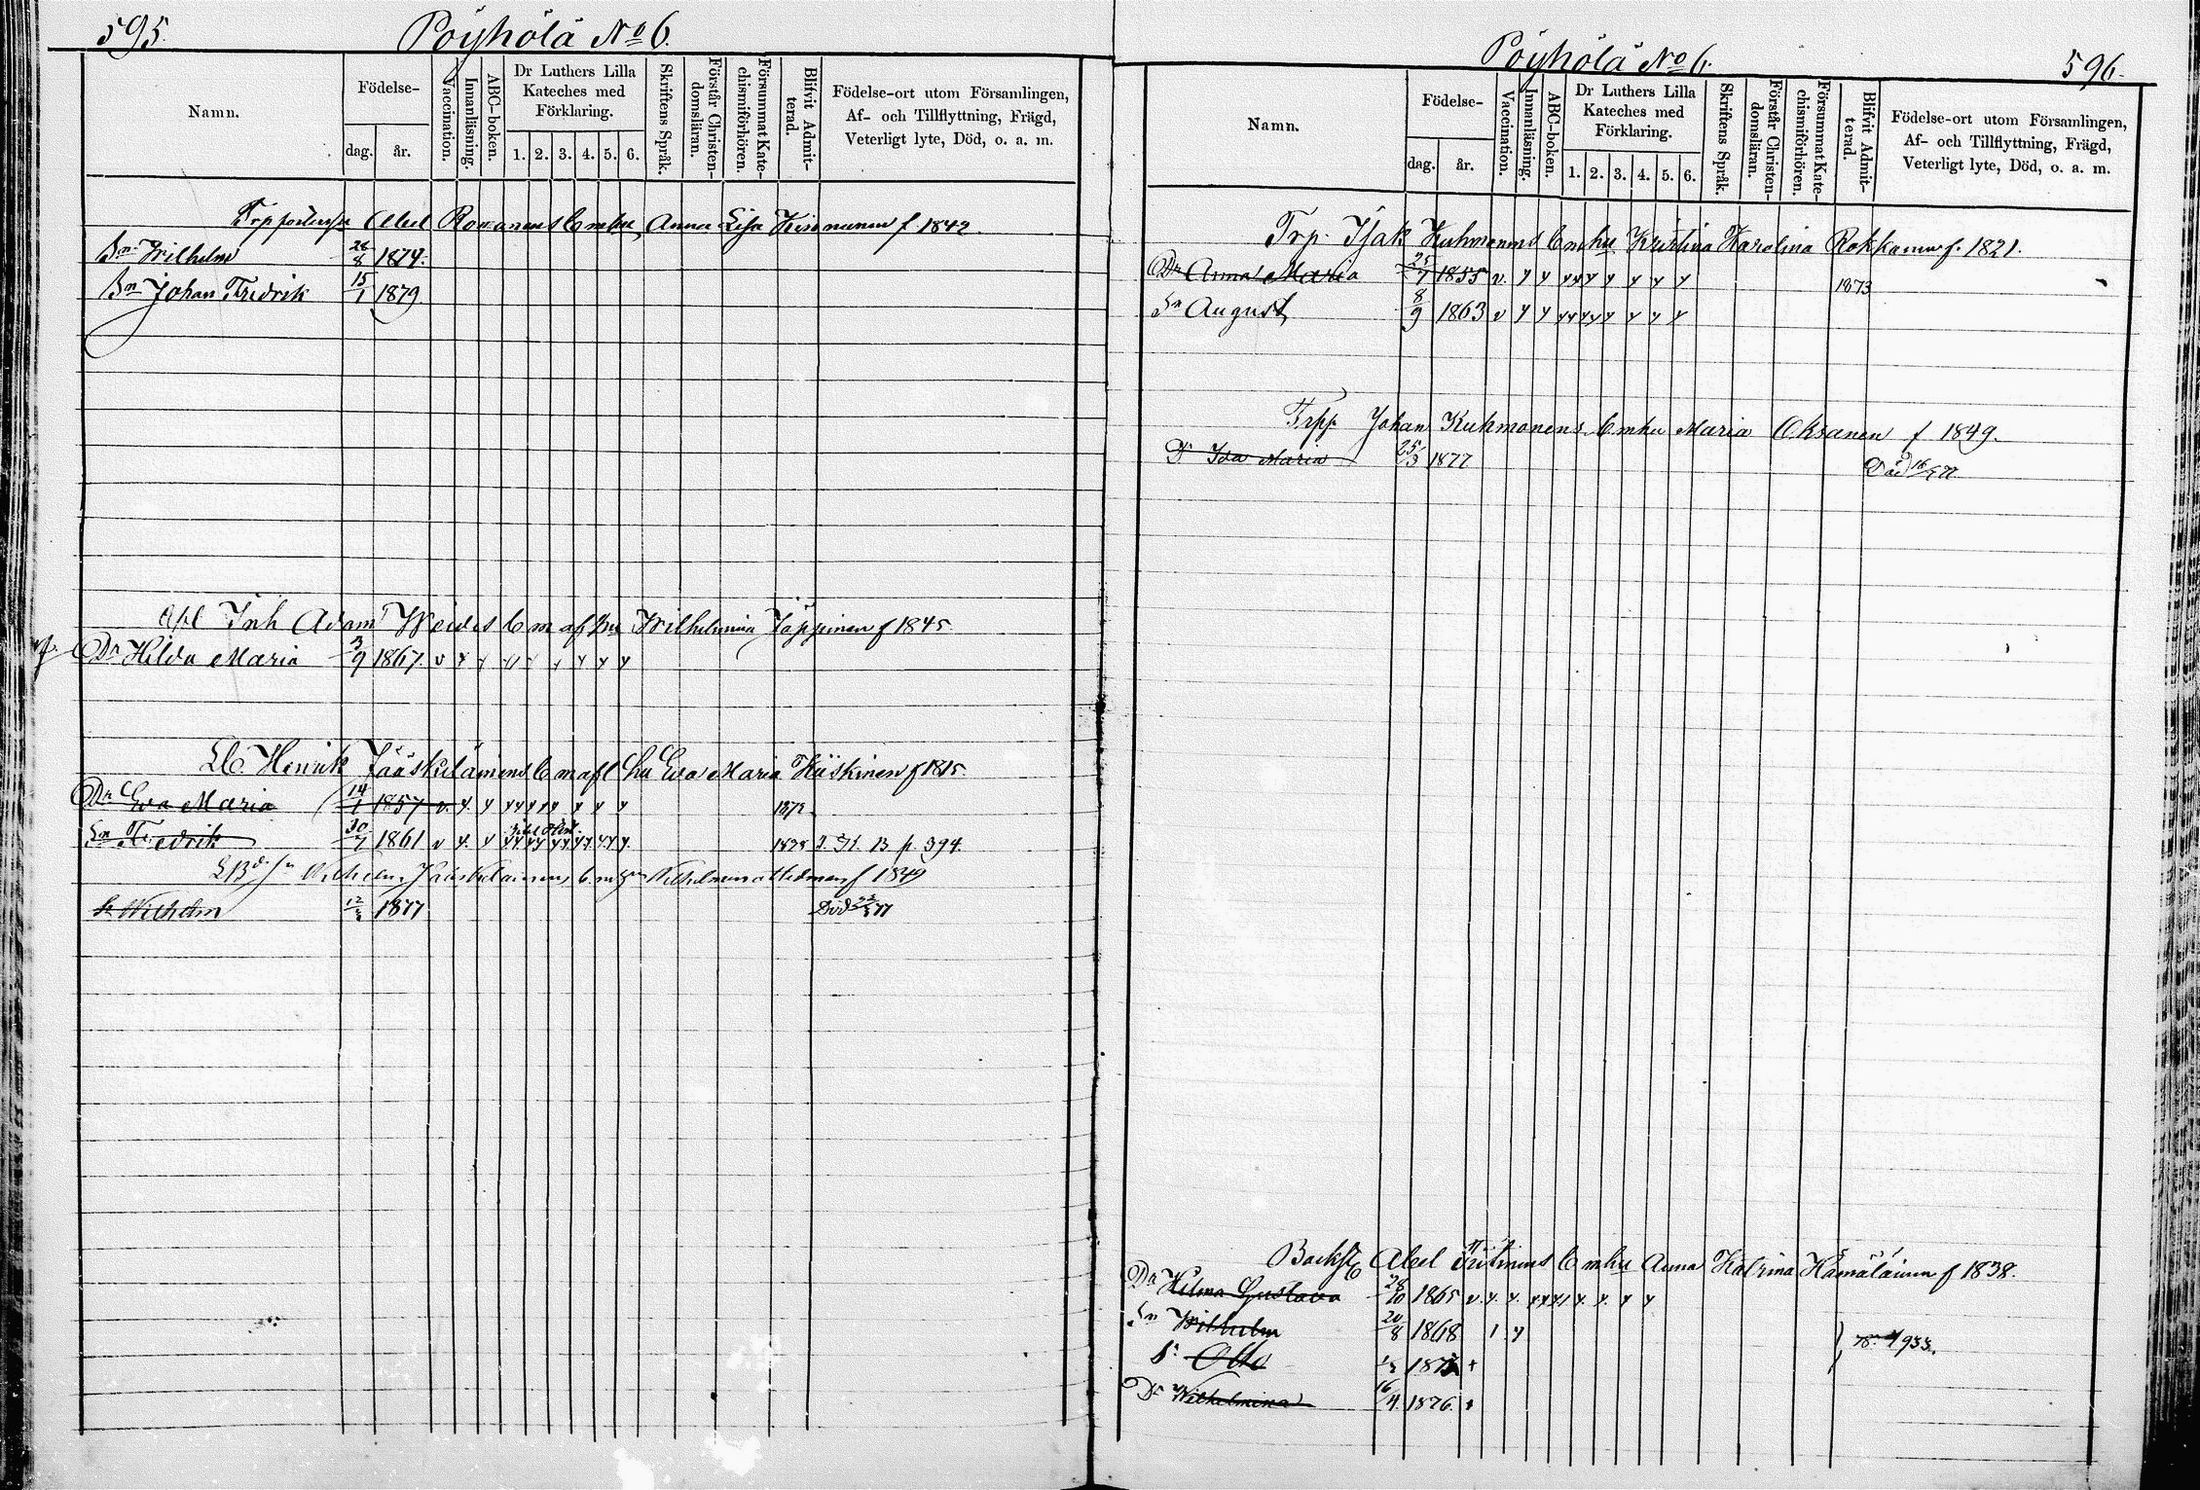 595.
Pöyhölä No 6.
Namn.
Födelse-
dag.
år.
Vaccination.
Innanläsning.
ABC-boken.
Dr Luthers Lilla
Kateches med
Förklaring.
1. 2. 3. 4. 5. 6.
Skriftens Språk.
Förstår Christen-
domsläran.
Försummat Kate-
chismiförhören.
Blifvit Admit-
terad.
Födelse-ort utom Församlingen,
Af- och Tillflyttning, Frägd,
Veterligt lyte, Död, o. a. m.
Abel Romanens Anna Lisa f 1842
Sn Wilhelm 28/8 1874.
Sn Johan Fredrik 15/1 1879
Joh Adam Weides Wilhelmina Jäppinen f 1845
Dr Hilda Maria 3/9 1867. v y y y y y y y
Henrik Jääskeläinens b m afl hu Eva Maria Kiiskinen f 1815.
Dr Eva Maria 14/1 1857 v. y. y y y y y y y y
Sn Fredrik 30/7 1861 v y. y 1878 p. 394.
Wilhelm Jääskeläinens Wilhelmina f 1849
Sn Wilhelm 12/3 1877 Död 77
Pöyhölä No 6.
596.
Namn.
Födelse-
dag.
år.
Vaccination.
Innanläsning.
ABC-boken.
Dr Luthers Lilla
Kateches med
Förklaring.
1. 2. 3. 4. 5. 6.
Skriftens Språk.
Förstår Christen-
domsläran.
Försummat Kate-
chismiförhören.
Blifvit Admit-
terad.
Födelse-ort utom Församlingen,
Af- och Tillflyttning, Frägd,
Veterligt lyte, Död, o. a. m.
Trp. Isak Kuhmonens b m hu Kristina Karolina Rokkanen f. 1821.
Dr Anna Maria 25/7 1855 v. y y y y y y y y y 1873
Sn August 8/9 1863 v y y y y y y y y y y
Trpp Johan Kuhmonens b m hu Maria Oksanen f 1849.
Dr Ida Maria 25/3 1877 Död 77.
Abel b m hu Anna Katrina Hämäläinen f 1838.
Dr Hilma Gustava 28/10 1865 v. y. y. y y y y. y. y y
Sn Wilhelm 20/8 1868 1 y
Sn Otto
Dr Wilhelmina 16/4 1876.